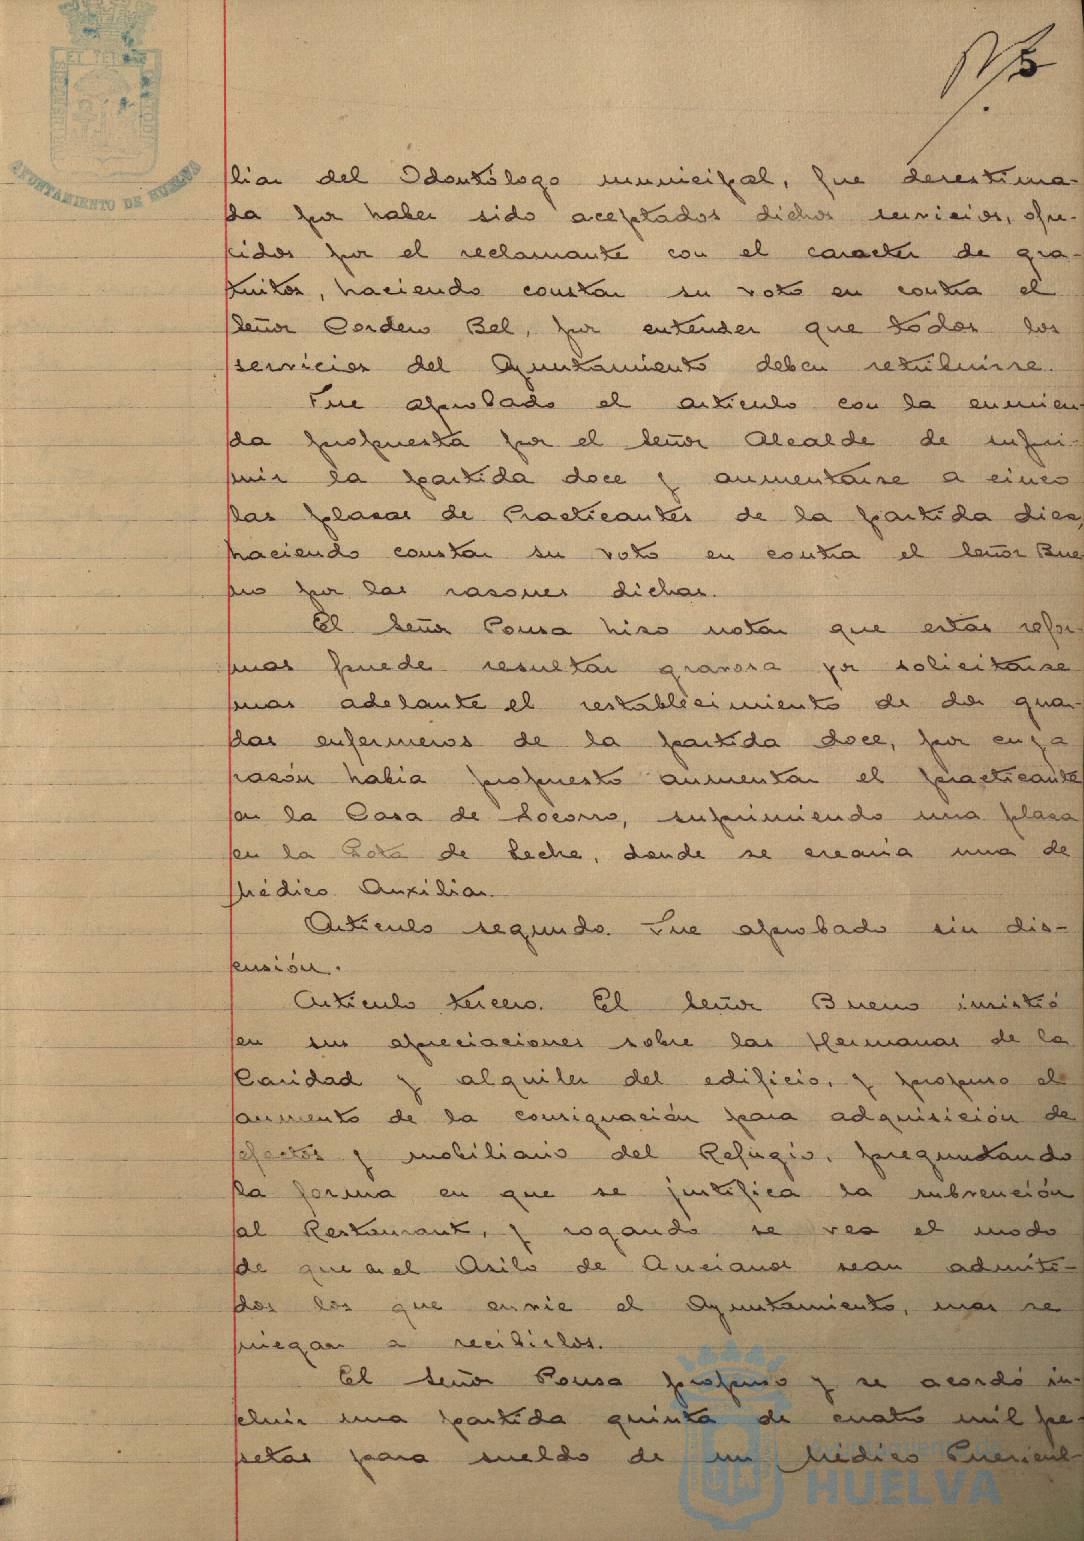 5
AYUNTAMIENTO DE HUELVA
liar del Odontólogo municipal, fue desestima-
da por haber sido aceptados dichos servicios, ofre-
cidos por el reclamante con el caracter de gra-
tuitos, haciendo constar su voto en contra el
Señor Cordero Bel, por entender que todos los
servicios del Ayuntamiento deben retribuirse.
Fue aprobado el artículo con la enmien-
da propuesta por el Señor Alcalde de supri-
mir la partida doce y aumentarse a cinco
las plazas de Practicantes de la partida diez,
haciendo constar su voto en contra el Señor Bue
no por las razones dichas.
El Señor Pousa hizo notar que estas refor-
mas puede resultar gravosa por solicitarse
mas adelante el restablecimiento de dos guar-
das enfermeros de la partida doce, por cuya
razón había propuesto aumentar el practicante
en la Casa de Socorro, suprimiendo una plaza
en la Gota de Leche, donde se crearia una de
Médico Auxiliar.
Artículo segundo. Fue aprobado sin dis-
cusión.
Artículo tercero. El Señor Bueno insistió
en sus apreciaciones sobre las Hermanas de la
Caridad y alquiler del edificio, y propuso el
aumento de la consignación para adquisición de
efectos y mobiliario del Refugio, preguntando
la forma en que se justifica la subvención
al Restaurant, y rogando se vea el modo
de que en el Asilo de Ancianos sean admiti-
dos los que envie el Ayuntamiento, mas se
niegan a recibirlos.
El Señor Pousa propuso y se acordó in-
cluir una partida quinta de cuatro mil pe-
setas para sueldo de un Médico Puericul-
Ayuntamiento de
HUELVA